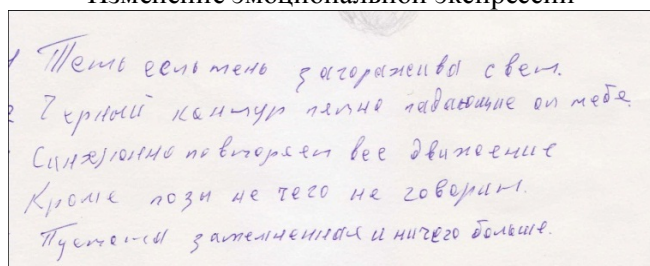 Изменение эмоциональной экспрессии
1 Теть есль тень загораживы свет.
2 Черный кантур пятно падающие от тебя
Синхронно повторяет все движоение
Кроме позы не чего не говорит.
Пустоты затемненная и ничего больше.